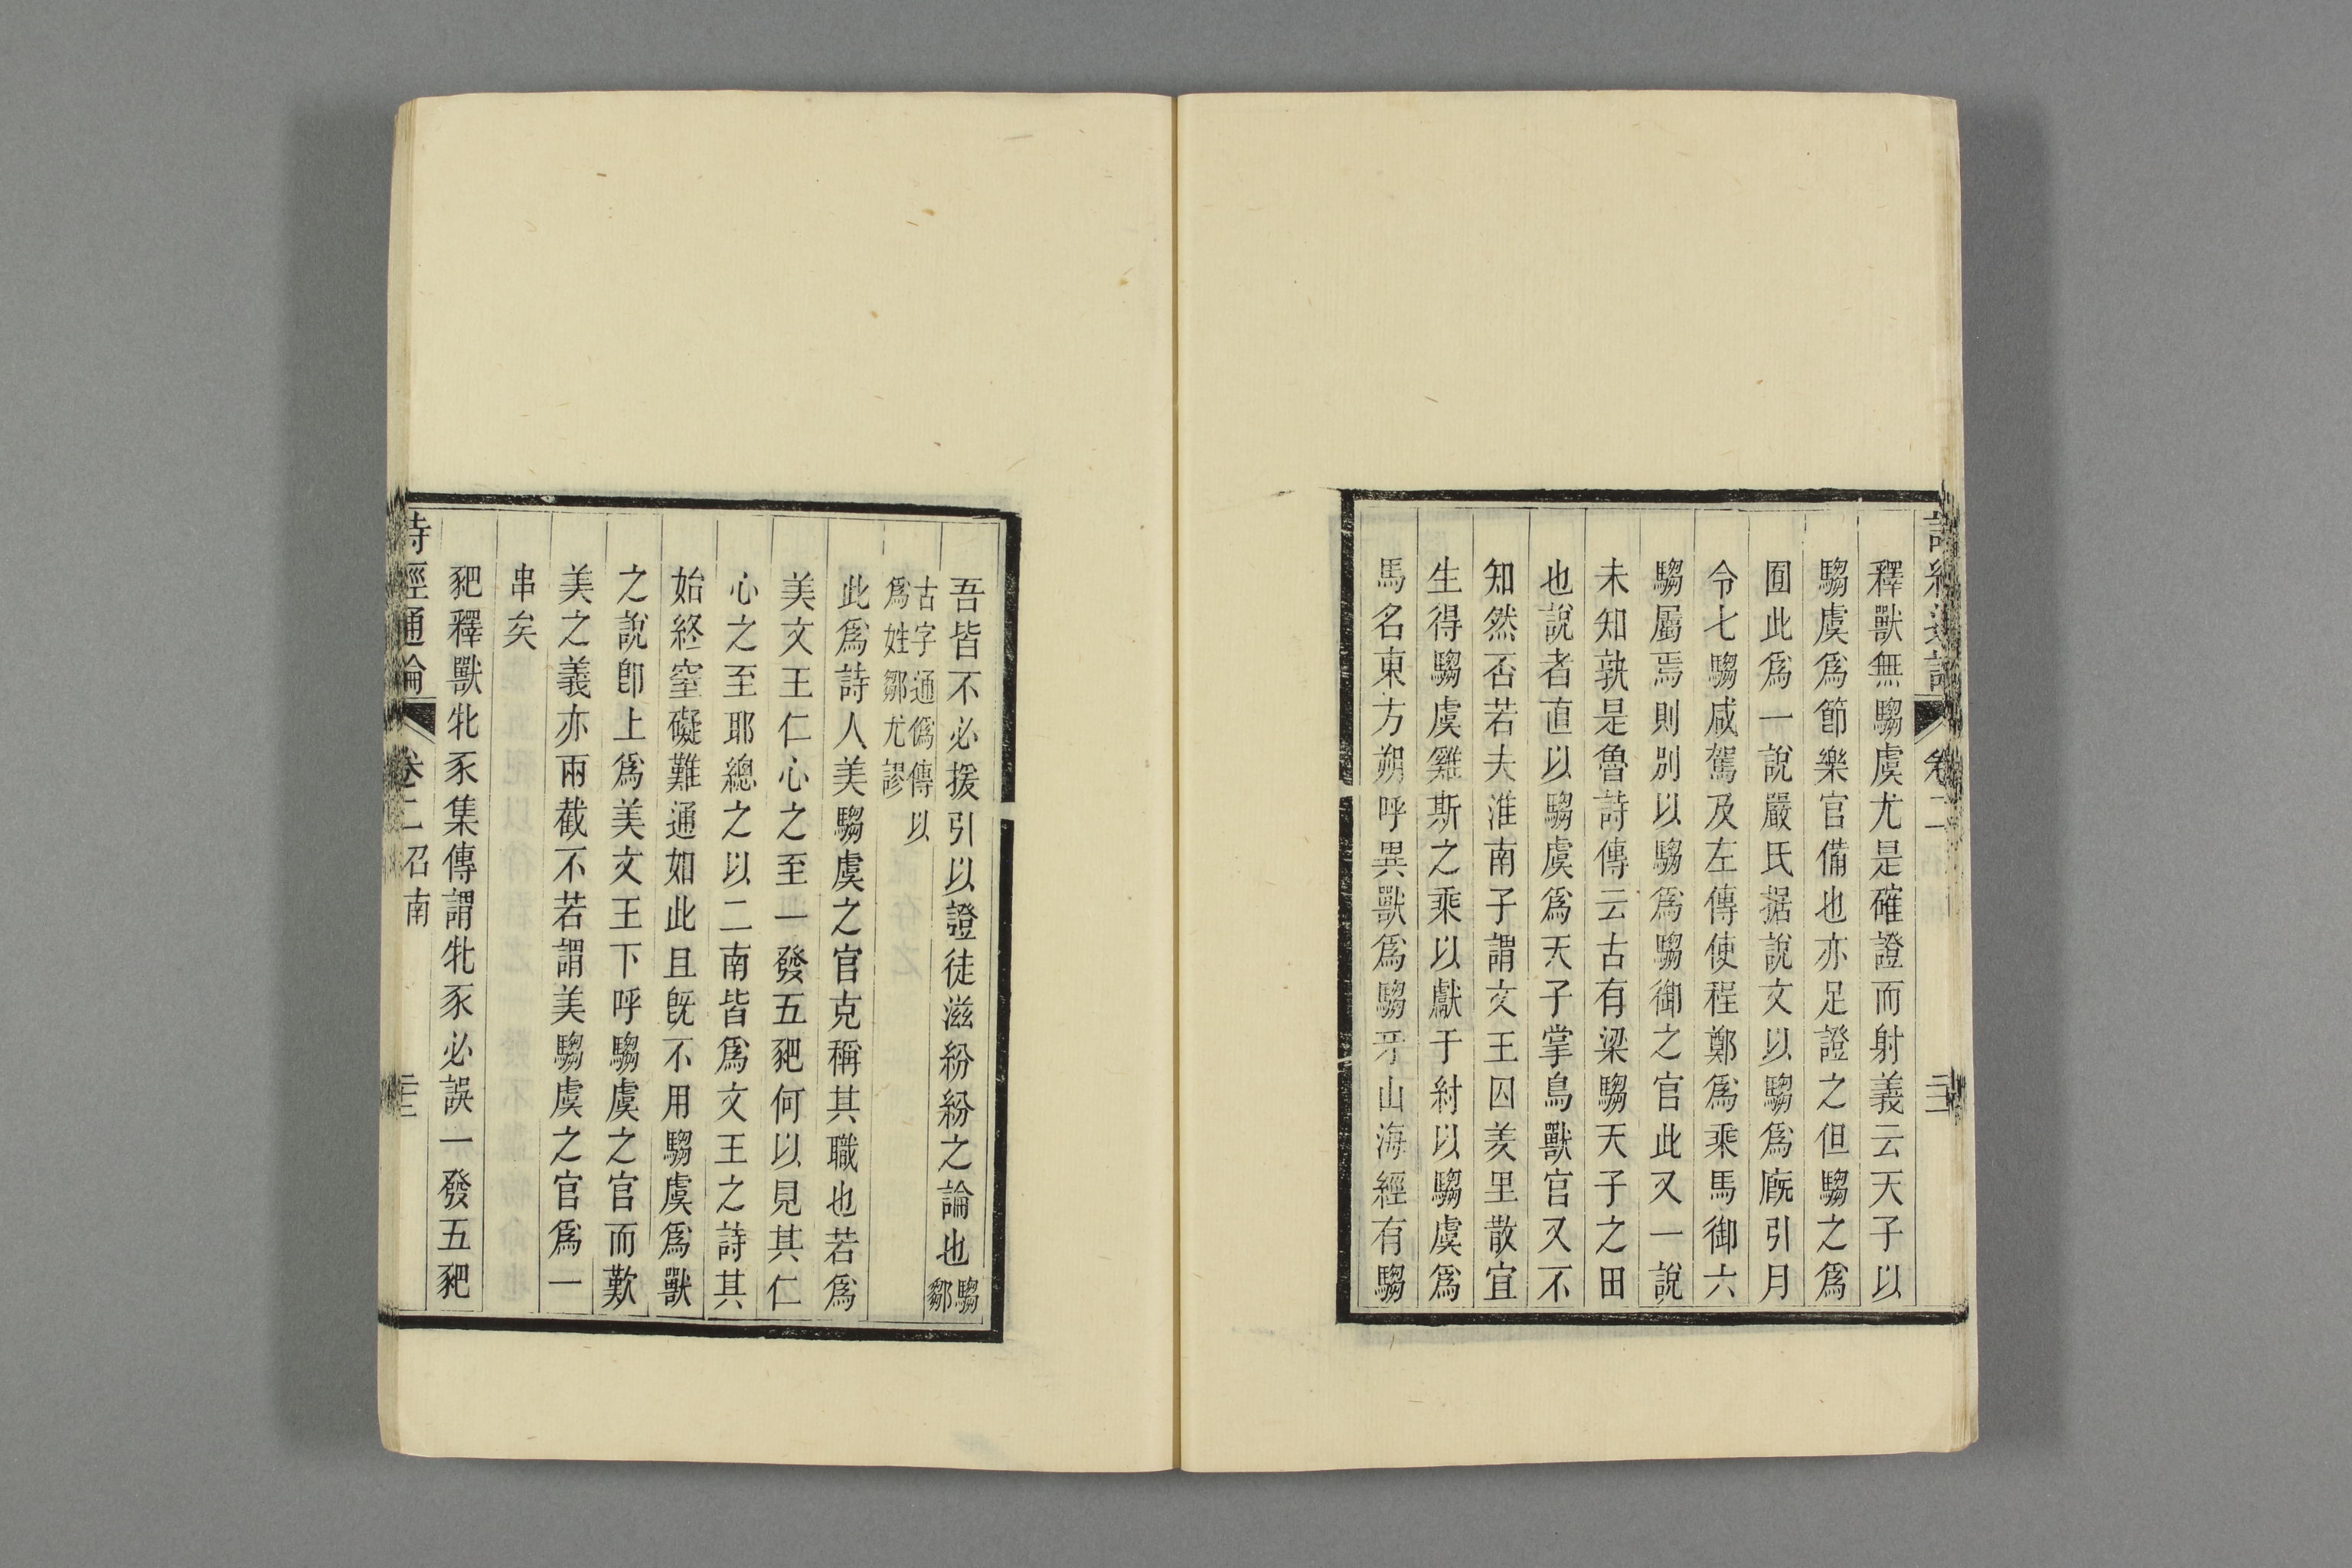 釋獸無騶虞尤是確證而射義云天子以
騶虞爲節樂官備也亦足證之但騶之爲
囿此爲一說嚴氏据說文以騶爲廐引月
令七騶咸駕及左傳使程鄭爲乘馬御六
騶屬焉則別以騶爲騶御之官此又一說
未知孰是魯詩傳云古有梁騶天子之田
也說者直以騶虞爲天子掌鳥獸官又不
知然否若夫淮南子謂文王囚羑里散宜
生得騶虞雞斯之乘以獻于紂以騶虞爲
馬名東方朔呼異獸爲騶牙山海經有騶
吾皆不必援引以證徒滋紛紛之論也騶鄒
古字通僞傳以
爲姓鄒尤謬
此爲詩人美騶虞之官克稱其職也若爲
美文王仁心之至一發五豝何以見其仁
心之至耶總之以二南皆爲文王之詩其
始終窒礙難通如此且既不用騶虞爲獸
之說卽上爲美文王下呼騶虞之官而歎
美之義亦兩截不若謂美騶虞之官爲一
串矣
豝釋獸牝豕集傳謂牡豕必誤一發五豝
詩經通論 卷二召南